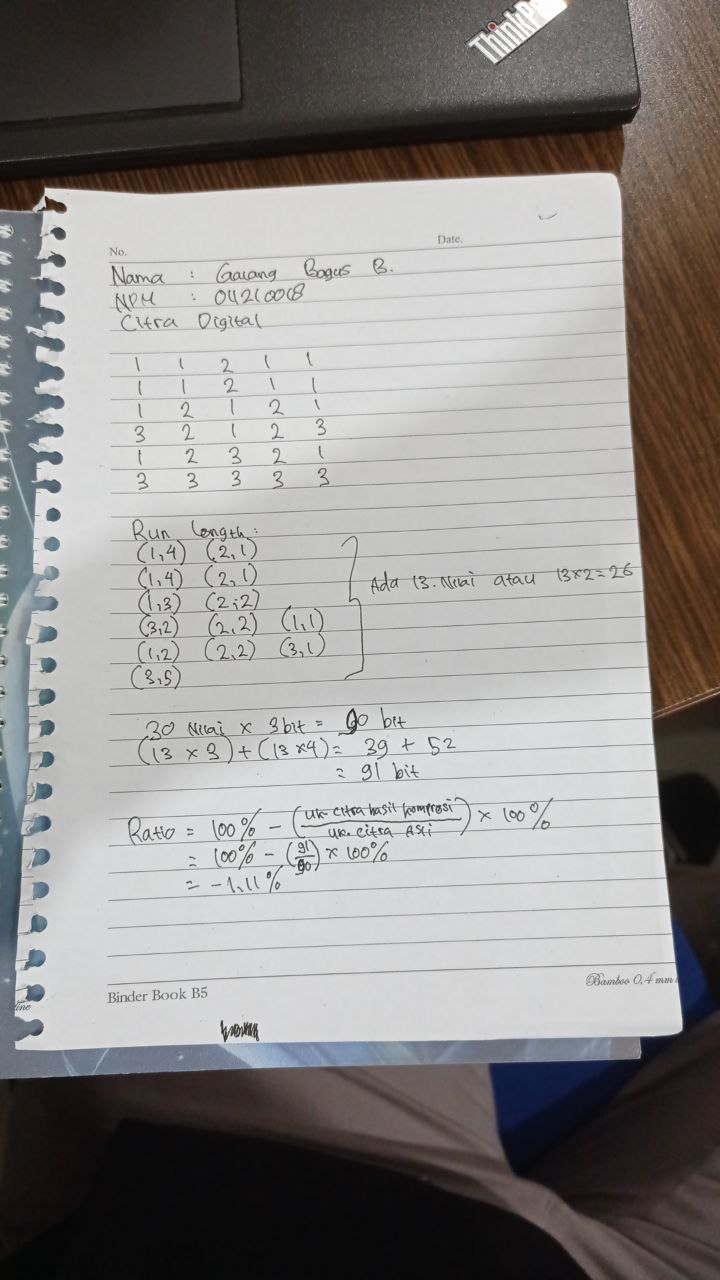 ThinkPad
No. Date.
Nama : Galang Bagus B.
NPM : 04210018
Citra Digital
1 1 2 1 1
1 1 2 1 1
1 2 1 2 1
3 2 1 2 3
1 2 3 2 1
3 3 3 3 3
Run Length:
(1,4) (2,1)
(1,4) (2,1)
(1,3) (2,2)
(3,2) (2,2) (1,1)
(1,2) (2,2) (3,1)
(3,5)
Ada 13. Nilai atau 13x2=26
30 Nilai x 3bit = 90 bit
(13 x 3) + (13 x4) = 39 + 52
= 91 bit
Ratio = 100% - (uk. citra hasil kompresi / uk. citra Asli) x 100%
= 100% - (91/90) x 100%
= -1,11%
Binder Book B5
Bamboo 0.4 mm
line